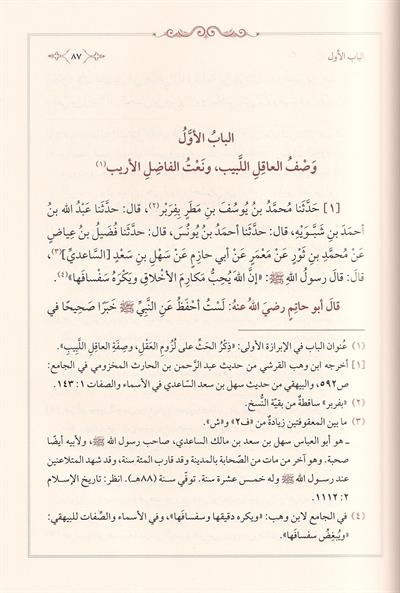 الباب الأول
٨٧
البابُ الأوَّلُ
وَصْفُ العاقِلِ اللَّبيب، ونَعْتُ الفاضِلِ الأريب(١)
[١] حَدَّثَنا مُحمَّدُ بنُ يُوسُفَ بنِ مَطَرٍ بِفِرَبْرَ(٢)، قال: حدَّثَنا عَبْدُ الله بنُ
أحمدَ بنِ شَبُّويَهِ، قال: حدَّثَنا أحمدُ بنُ يُونُسَ، قال: حدَّثَنا فُضَيلُ بنُ عِياضٍ
عَنْ مُحمَّدِ بنِ ثَوْرٍ عَنْ مَعمَرٍ عَنْ أبي حازِمٍ عَنْ سَهْلِ بنِ سَعْدٍ [السَّاعديِّ](٣)،
قالَ: قالَ رسولُ اللهِ ﷺ: «إنَّ اللهَ يُحِبُّ مَكارِمَ الأخْلاقِ ويَكرَهُ سَفْسافَها»(٤).
قالَ أبو حاتِمٍ رضيَ اللهُ عنهُ: لَسْتُ أحْفَظُ عَنِ النَّبيِّ ﷺ خَبَرًا صَحيحًا في
(١) عُنوان الباب في الإبرازة الأولى: «ذِكْرُ الحَثِّ على لُزومِ العَقْلِ، وصِفَةِ العاقلِ اللَّبيبِ».
[١] أخرجه ابن وهب القرشي من حديث عبد الرَّحمن بن الحارث المخزومي في الجامع:
ص٥٩٢، والبيهقي من حديث سهل بن سعد السّاعدي في الأسماء والصفات ١: ١٤٣.
(٢) «بفربر» ساقطةٌ من بقيّة النُّسخ.
(٣) ما بين المعقوفتين زيادةٌ من «ف٢» و«ش».
ــ هو أبو العباس سهل بن سعد بن مالك الساعدي، صاحب رسول الله ﷺ، ولأبيه أيضًا
صحبة. وهو آخر من مات من الصّحابة بالمدينة وقد قارب المئة سنة، وقد شهد المتلاعنين
عند رسول الله ﷺ وله خمس عشرة سنة. توفّي سنة (٨٨هـ). انظر: تاريخ الإسلام
٢: ١١١٢.
(٤) في الجامع لابن وهب: «ويكره دقيقها وسفسافها»، وفي الأسماء والصِّفات للبيهقي:
«ويُبغِضُ سفسافها».